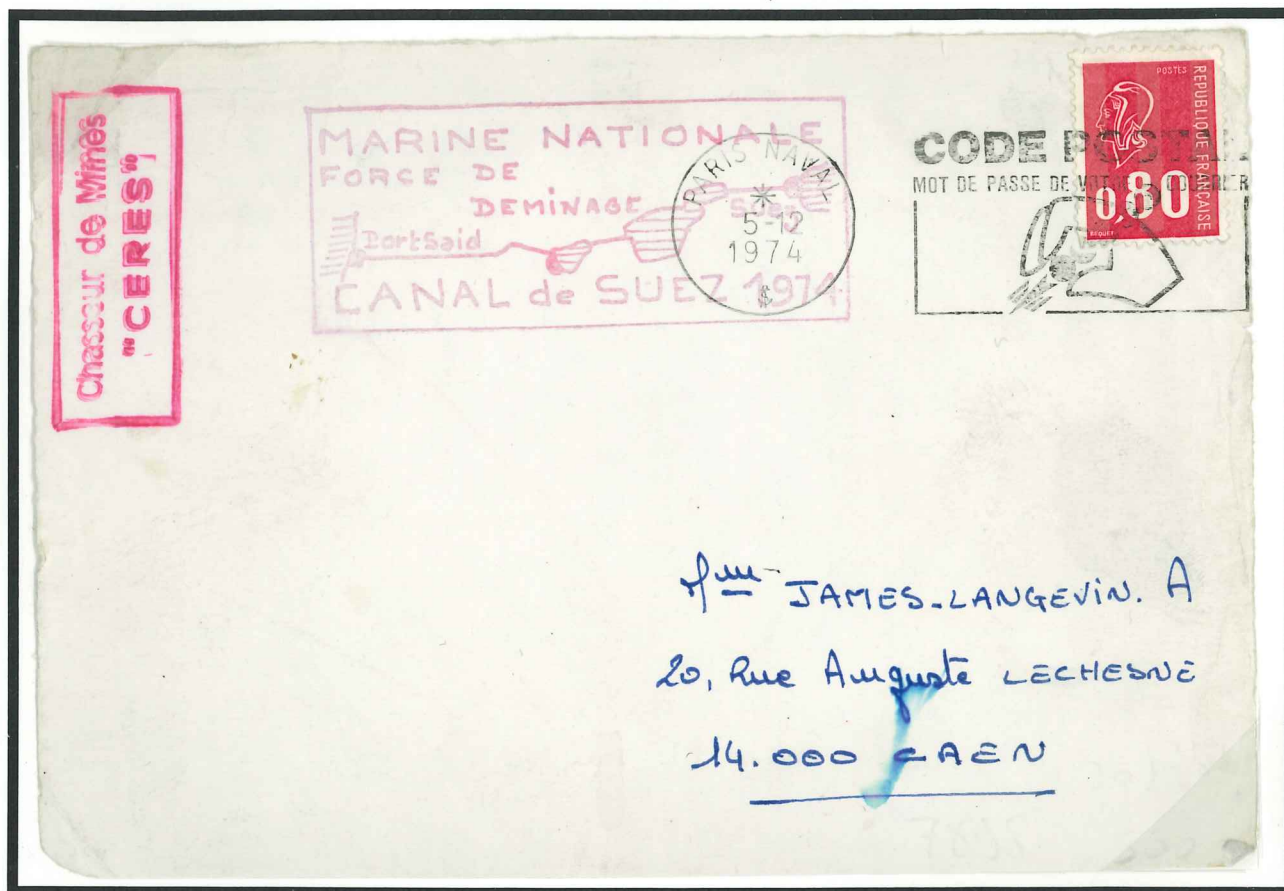 Chasseur de Mines
"CERES"
MARINE NATIONALE
FORCE DE
DEMINAGE
Suez
Port Said
CANAL de SUEZ 1974
PARIS NAVAL
5-12
1974
CODE POSTAL
MOT DE PASSE DE VOTRE COURRIER
POSTES
REPUBLIQUE FRANCAISE
0,80
BEQUET
Mme JAMES-LANGEVIN. A
20, Rue Auguste LECHESNE
14.000 CAEN